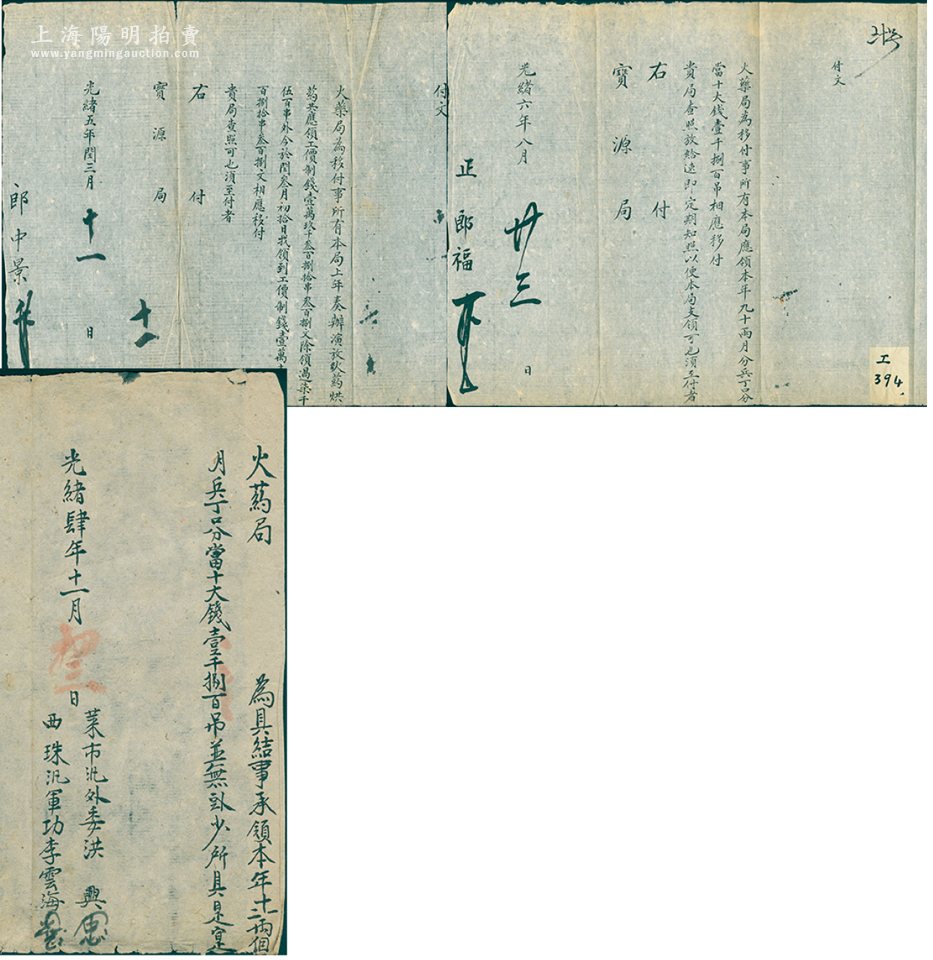 上海陽明拍賣
www.yangmingauction.com
付文
火藥局為移付事所有本局應領本年九十兩月分兵丁口分
當十大錢壹千捌百吊相應移付
貴局查照放給速即定期知照以便本局支領可也須至付者
右付
寶源局
光緒六年八月廿三日
正郎福
工
394
付文
火藥局為移付事所有本局上年奏辦演放火葯烘
葯共應領工價制錢壹萬玖千叁百捌拾串叁百捌文除領過柒千
伍百串外今於閏叁月初拾日找領到工價制錢壹萬
百捌拾串叁百捌文相應移付
貴局查照可也須至付者
右付
寶源局
光緒五年閏三月十一日
十一
郎中景
火葯局 為具結事承領本年十二兩個
月兵丁口分當十大錢壹千捌百吊並無短少所具是寔
光緒肆年十一月 日
菜市汛外委洪興
西珠汛軍功李雲海